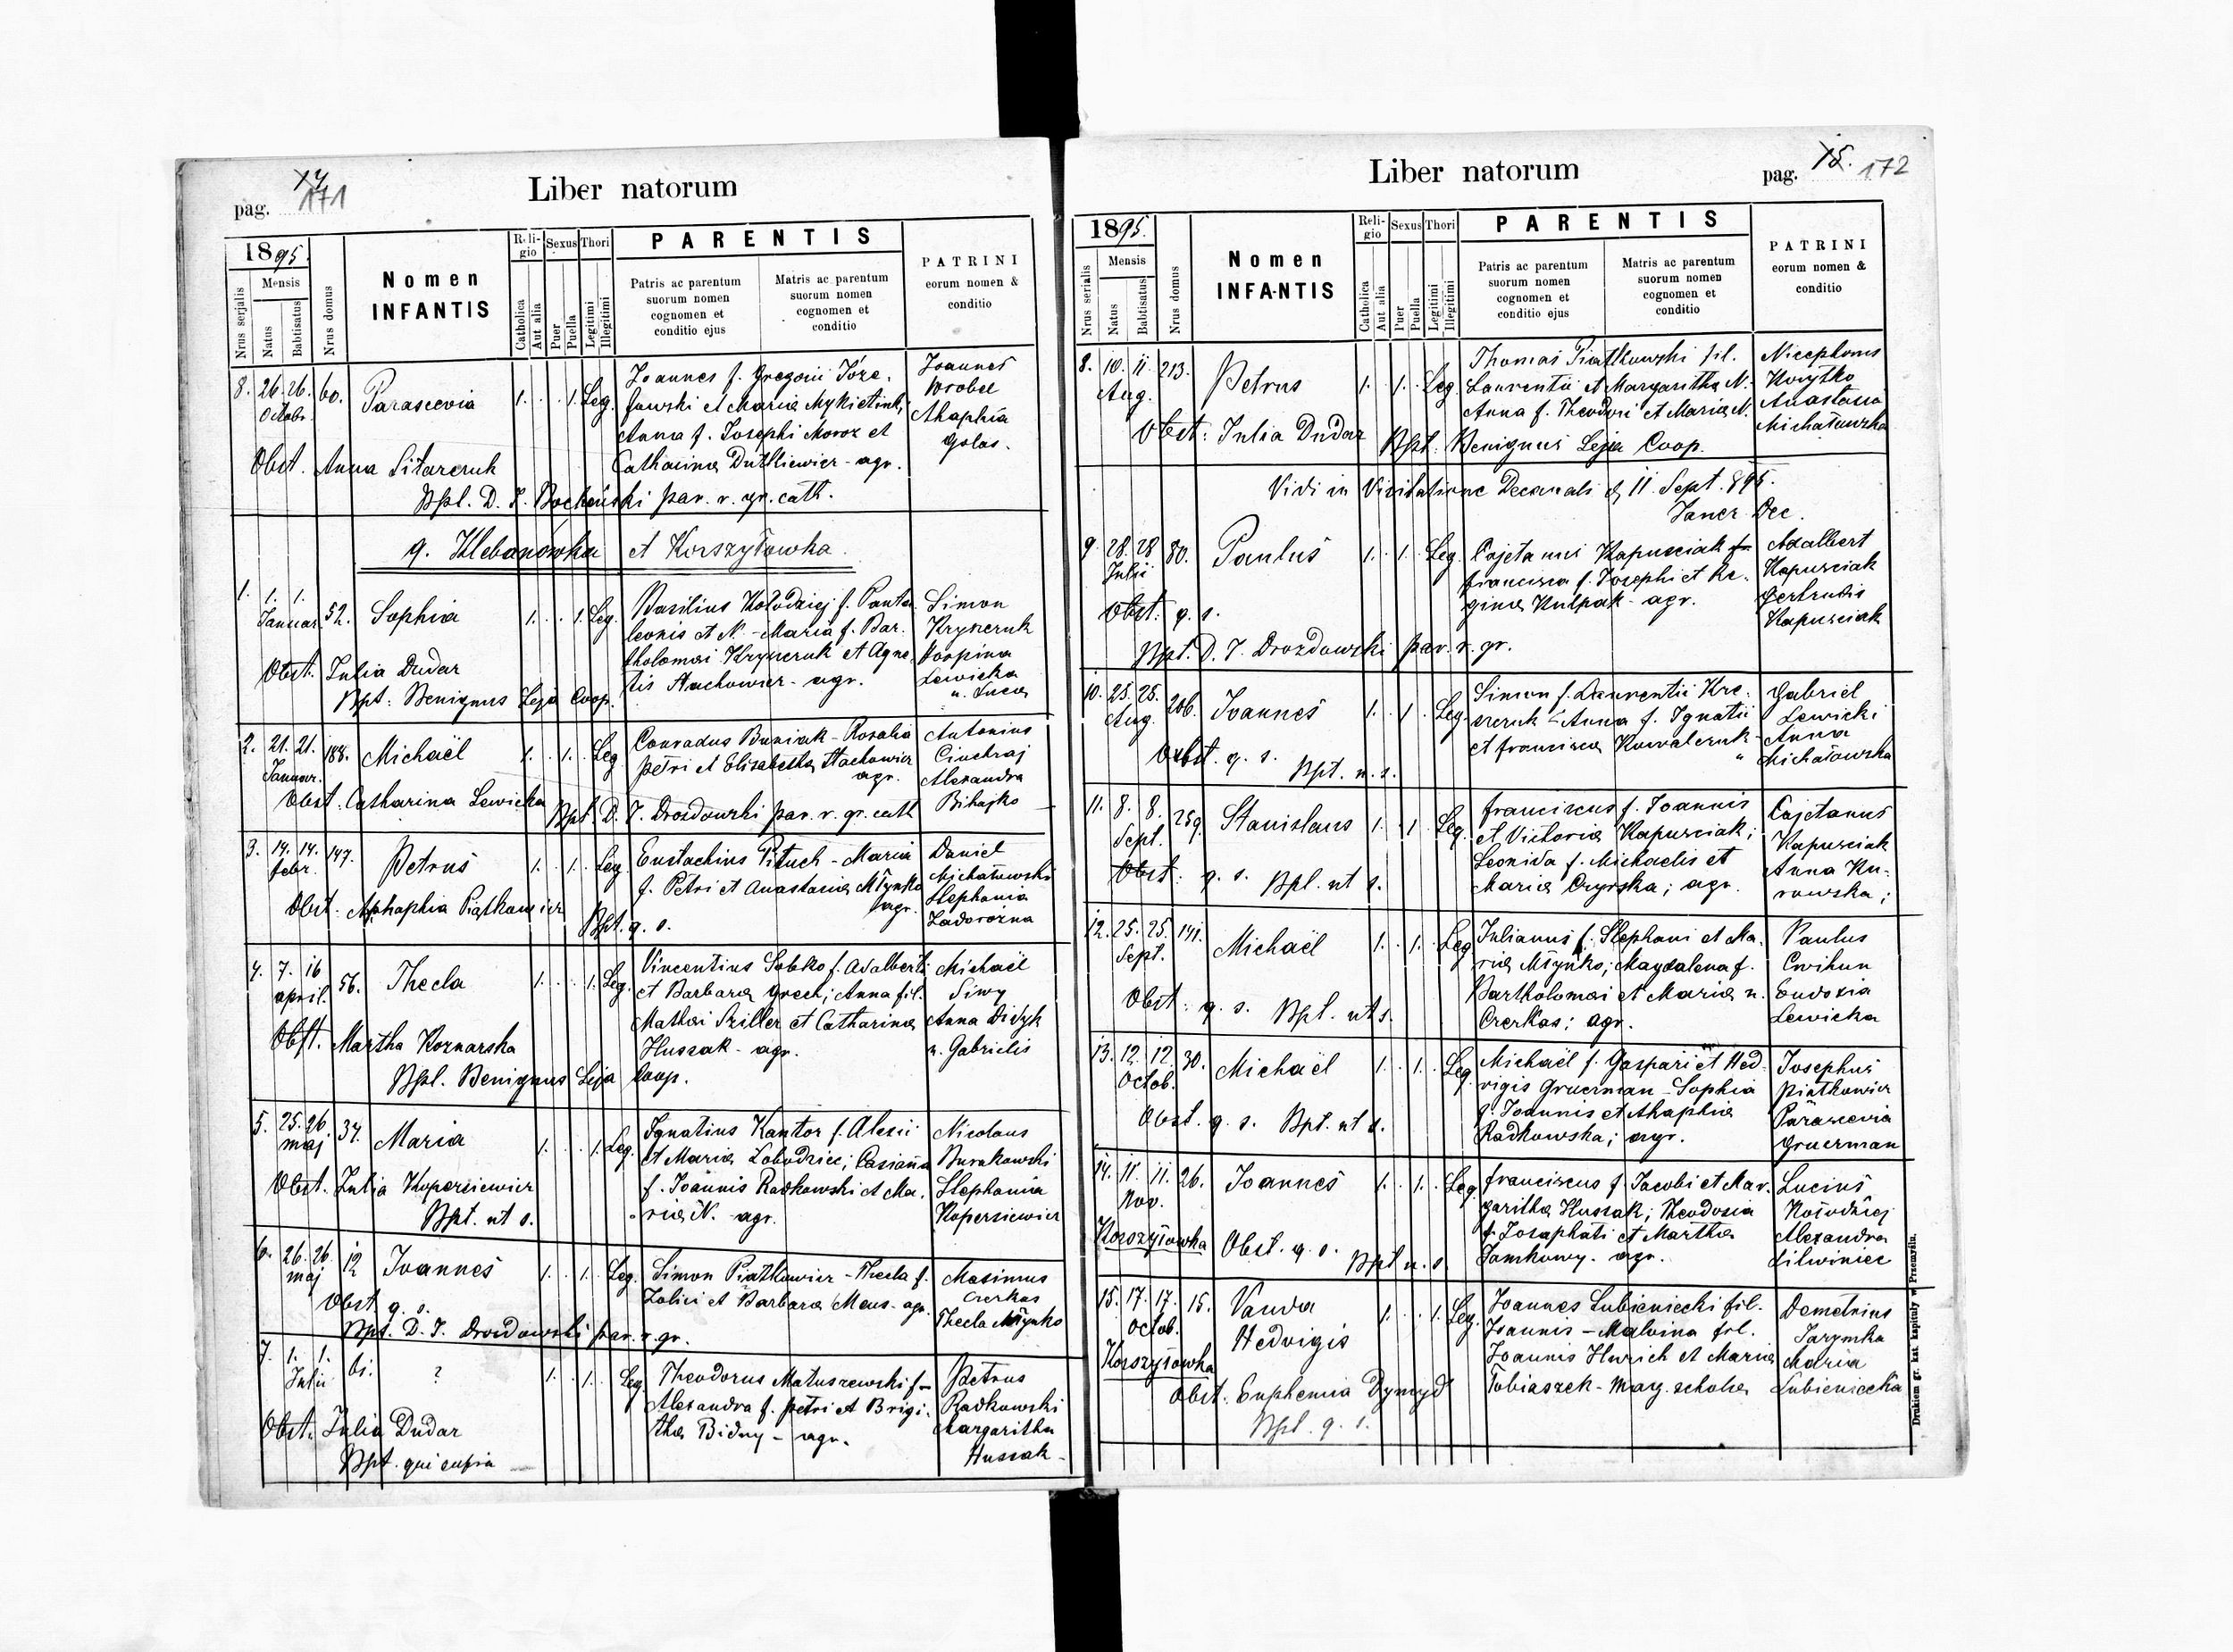 pag. 171
Liber natorum
1895.
Nrus serjalis
Mensis
Natus
Babtisatus
Nrus domus
Nomen
INFANTIS
Religio
Catholica
Aut alia
Sexus
Puer
Puella
Thori
Legitimi
Illegitimi
PARENTIS
Patris ac parentum
suorum nomen
cognomen et
conditio ejus
Matris ac parentum
suorum nomen
cognomen et
conditio
PATRINI
eorum nomen &
conditio
8. 26. 26. Octobr. 60. Parascevia 1. . . 1. Leg.
Joannes f. Gregorii Józe.
fowski et Maria Mykietiuk,
Anna f. Josephi Moroz et
Catharina Dutkiewicz - agr.
Joannes
Wrobel
Ahaphia
Golas.
Obst. Anna Sitarcruk
Bpt. D. J. Bocheński par. r. gr. cath.
9. Klebanówka et Korszyłowka.
1. 1. 1. Januar 52. Sophia 1. . . 1. Leg.
Basilius Kołodziej f. Panta
leonis et N. - Maria f. Bar.
tholomei Kryszcruk et Agne.
tis Stachowicz - agr.
Simon
Kryscruk
Lewicka
u. Luca
Obst. Julia Dudar
Bpt: Benignus Leja Coop.
2. 21. 21. Januar. 188. Michaël 1. . 1. . Leg.
Conradus Buniak - Rosalia
Petri et Elisabetha Stachowicz
agr.
Antonius
Alexandra
Bihajko
Obst. Catharina Lewicka
Bpt. D. J. Drozdowski par. r. gr. cath
3. 14. 14. febr. 147. Petrus 1. . 1. . Leg.
Eustachius Pituch - Maria
f. Petri et Anastasia Młynko
agr.
Daniel
Michałowski
Stephania
Zadorozna
Obst. Ahaphia Piątkowicz
Bpt. q. s.
4. 7. 16 april. 56. Thecla 1. . . 1. Leg.
Vincentius Sobko f. Adalberti
et Barbara Grech; Anna fil.
Mathei Sziller et Catharina
Hussak - agr.
Michaël
Siwy
Anna Didyk
u. Gabrielis
Obst. Martha Koznarska
Bpt. Benignus Leja Coop.
5. 25. 26 maj 37. Maria 1. . . 1. Leg.
Ignatius Kantor f. Alexii
et Maria Łobodziec; Casiana
f. Joannis Radkowski et Ma.
ria N. - agr.
Nicolaus
Burakowski
Stephania
Kopersiewicz
Obst. Julia Kopersiewicz
Bpt. ut s.
6. 26. 26. maj 12 Joannes 1. . 1. . Leg.
Simon Piatkowicz - Thecla f.
et Barbara Meus - agr.
Maximus
Czerkas
Thecla Młynko
Obst q. s.
Bpt. D. J. Drozdowski par. r. gr.
7. 1. 1. Julii ? 1. . 1. . Leg.
Theodorus Matuszewski f -
Alexandra f. Petri et Brigi.
tha Bidny - agr.
Petrus
Radkowski
Margaritha
Hussak -
Obst. Julia Dudar
Bpt. qui supra
pag. 75. 172
Liber natorum
1895.
Nrus serialis
Mensis
Natus
Babtisatus
Nrus domus
Nomen
INFANTIS
Religio
Catholica
Aut alia
Sexus
Puer
Puella
Thori
Legitimi
Illegitimi
PARENTIS
Patris ac parentum
suorum nomen
cognomen et
conditio ejus
Matris ac parentum
suorum nomen
cognomen et
conditio
PATRINI
eorum nomen &
conditio
8. 10. 11. Aug. 213. Petrus 1. . 1. . Leg.
Thomas Piatkowski fil.
Laurentii et Margaritha N.
Anna f. Theodori et Maria N.
Nicephorus
Korytko
Anastasia
Michałowska
Obst: Julia Dudar Bpt. Benignus Leja Coop.
Vidi in Visitatione Decanali d. 11 Sept. 895.
Janer Dec.
9. 28. 28 Julii 80. Paulus 1. . 1. . Leg.
Cajetanus Kapusciak
francisca f. Josephi et Re.
gina Kulpak - agr.
Adalbert
Kapusciak
Gertrudis
Kapusciak
Obst. q. s.
Bpt. D. J. Drozdowski par. r. gr.
10. 25. 25. Aug. 206. Joannes 1. . 1. . Leg.
Simon f. Laurentii Kre.
szcruk - Anna f. Ignatii
et francisca Kowalcruk -
Gabriel
Lewicki
Anna
Michałowska
Obst. q. s. Bpt. u. s.
11. 8. 8. Sept. 259. Stanislaus 1. . 1. . Leg.
franciscus f. Joannis
et Victoria Kapusciak;
Leonida f. Michaelis et
Maria Czyrska; agr.
Cajetanus
Kapusciak
Anna Ku-
rowska;
Obst: q. s. Bpt. ut s.
12. 25. 25. Sept. 141. Michaël 1. . 1. . Leg
Julianus f. Stephani et Ma.
ria Młynko; Magdalena f.
Bartholomei et Maria n.
Czerkas; agr.
Paulus
Cwihun
Eudoxia
Lewicka
Obst: q. s. Bpt. ut s.
13. 12. 12. Octob. 30. Michaël 1. . 1. . Leg
Michaël f. Gaspari et Hed
vigis Gruerman - Sophia
f. Joannis et Ahaphia
Radkowska; agr.
Josephus
Piatkowicz
Parascevia
Gruerman
Obst. q. s. Bpt. ut s.
14. 11. 11. Nov. 26. Joannes 1. . 1. . Leg
franciscus f Jacobi et Mar.
garitha Hussak; Theodosia
f. Josaphati et Martha
Samkowy. agr.
Lucius
Kołodziej
Alexandra
Litwiniec
Korszyłowka Obst. q. s. Bpt u. s.
15. 17. 17. Octob. 15. Vanda Hedvigis 1. . . 1. Leg.
Joannes Lubieniecki fil.
Joannis - Malvina fil.
Joannis Hurich et Maria
Tobiaszek - Mag. schola
Demetrius
Jarymka
Maria
Lubieniecka
Korszyłowka
Obst: Euphemia Dymyd
Bpt. q. s.
Drukiem gr. kat. kapituły w Przemyślu.